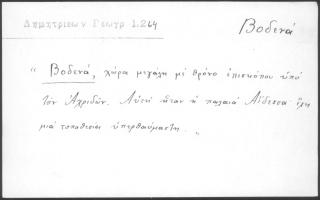 Δημητριεων Γεωγρ 1.264
Βοδενά
“ Βοδενά, χώρα μεγάλη μέ θρόνο ἐπισκόπου ὑπό
τόν Ἀχριδῶν. Αὐτή ἦταν ἡ παλαιά Αἴδεσσα ἔχει
μιά τοποθεσία ὑπερθαύμαστη. „